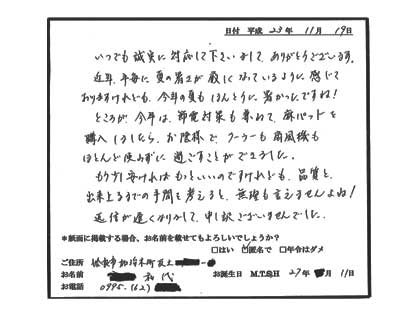 日付 平成 23年 11月 19日
いつでも誠実に対応して下さいまして、ありがとうございます。
近年、平毎に夏の暑さが厳しくなっているように感じて
おりますけれども、今年の夏もほんとうに暑かったですね!
ところが、今年は、節電対策も兼ねて、麻パッドを
購入しましたら、お陰様で、クーラーも扇風機も
ほとんど使わずに過ごすことができました。
もう少し安ければもっといいのですけれども、品質と、
出来上るまでの手間を考えると、無理も言えませんよね!
返信が遅くなりまして、申し訳ございませんでした。
*紙面に掲載する場合、お名前を載せてもよろしいでしょうか?
□はい ☑匿名で □年令はダメ
ご住所 市加治木町反土
お名前 お誕生日 M.T.S.H 27年 月 11日
お電話 0995.(62)